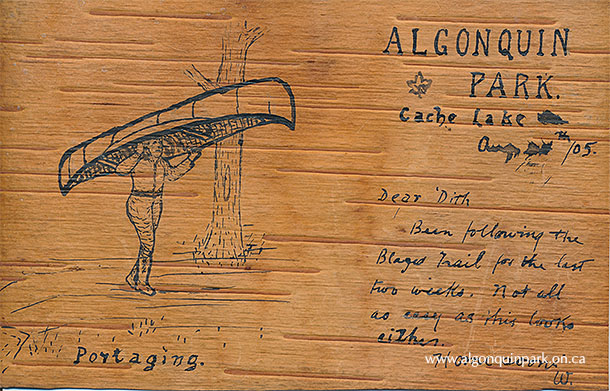 ALGONQUIN
PARK.
Cache Lake
Aug th/05.
Dear 'Dith
Been following the
Blazed Trail for the last
two weeks. Not all
as easy as this looks
either.
More anon
W.
Portaging.
www.algonquinpark.on.ca